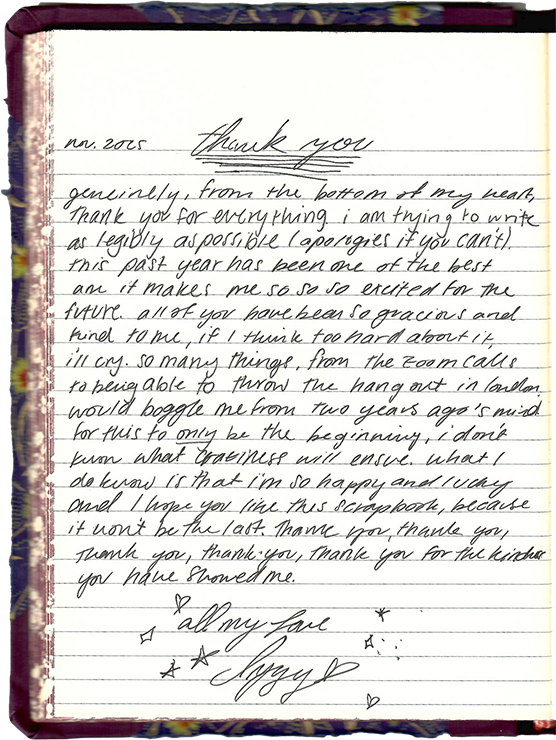 nov. 2025 thank you
genuinely, from the bottom of my heart,
thank you for everything. i am trying to write
as legibly as possible (apologies if you can't).
this past year has been one of the best
an it makes me so so so excited for the
future. all of you have been so gracious and
kind to me, if I think too hard about it,
i'll cry. so many things, from the zoom calls
to being able to throw the hang out in london,
would boggle me from two years ago's mind.
for this to only be the beginning, i don't
know what craziness will ensue. what I
do know is that i'm so happy and lucky
and I hope you like this scrapbook, because
it won't be the last. Thank you, thank you,
thank you, thank you, thank you for the kindness
you have showed me.
all my love